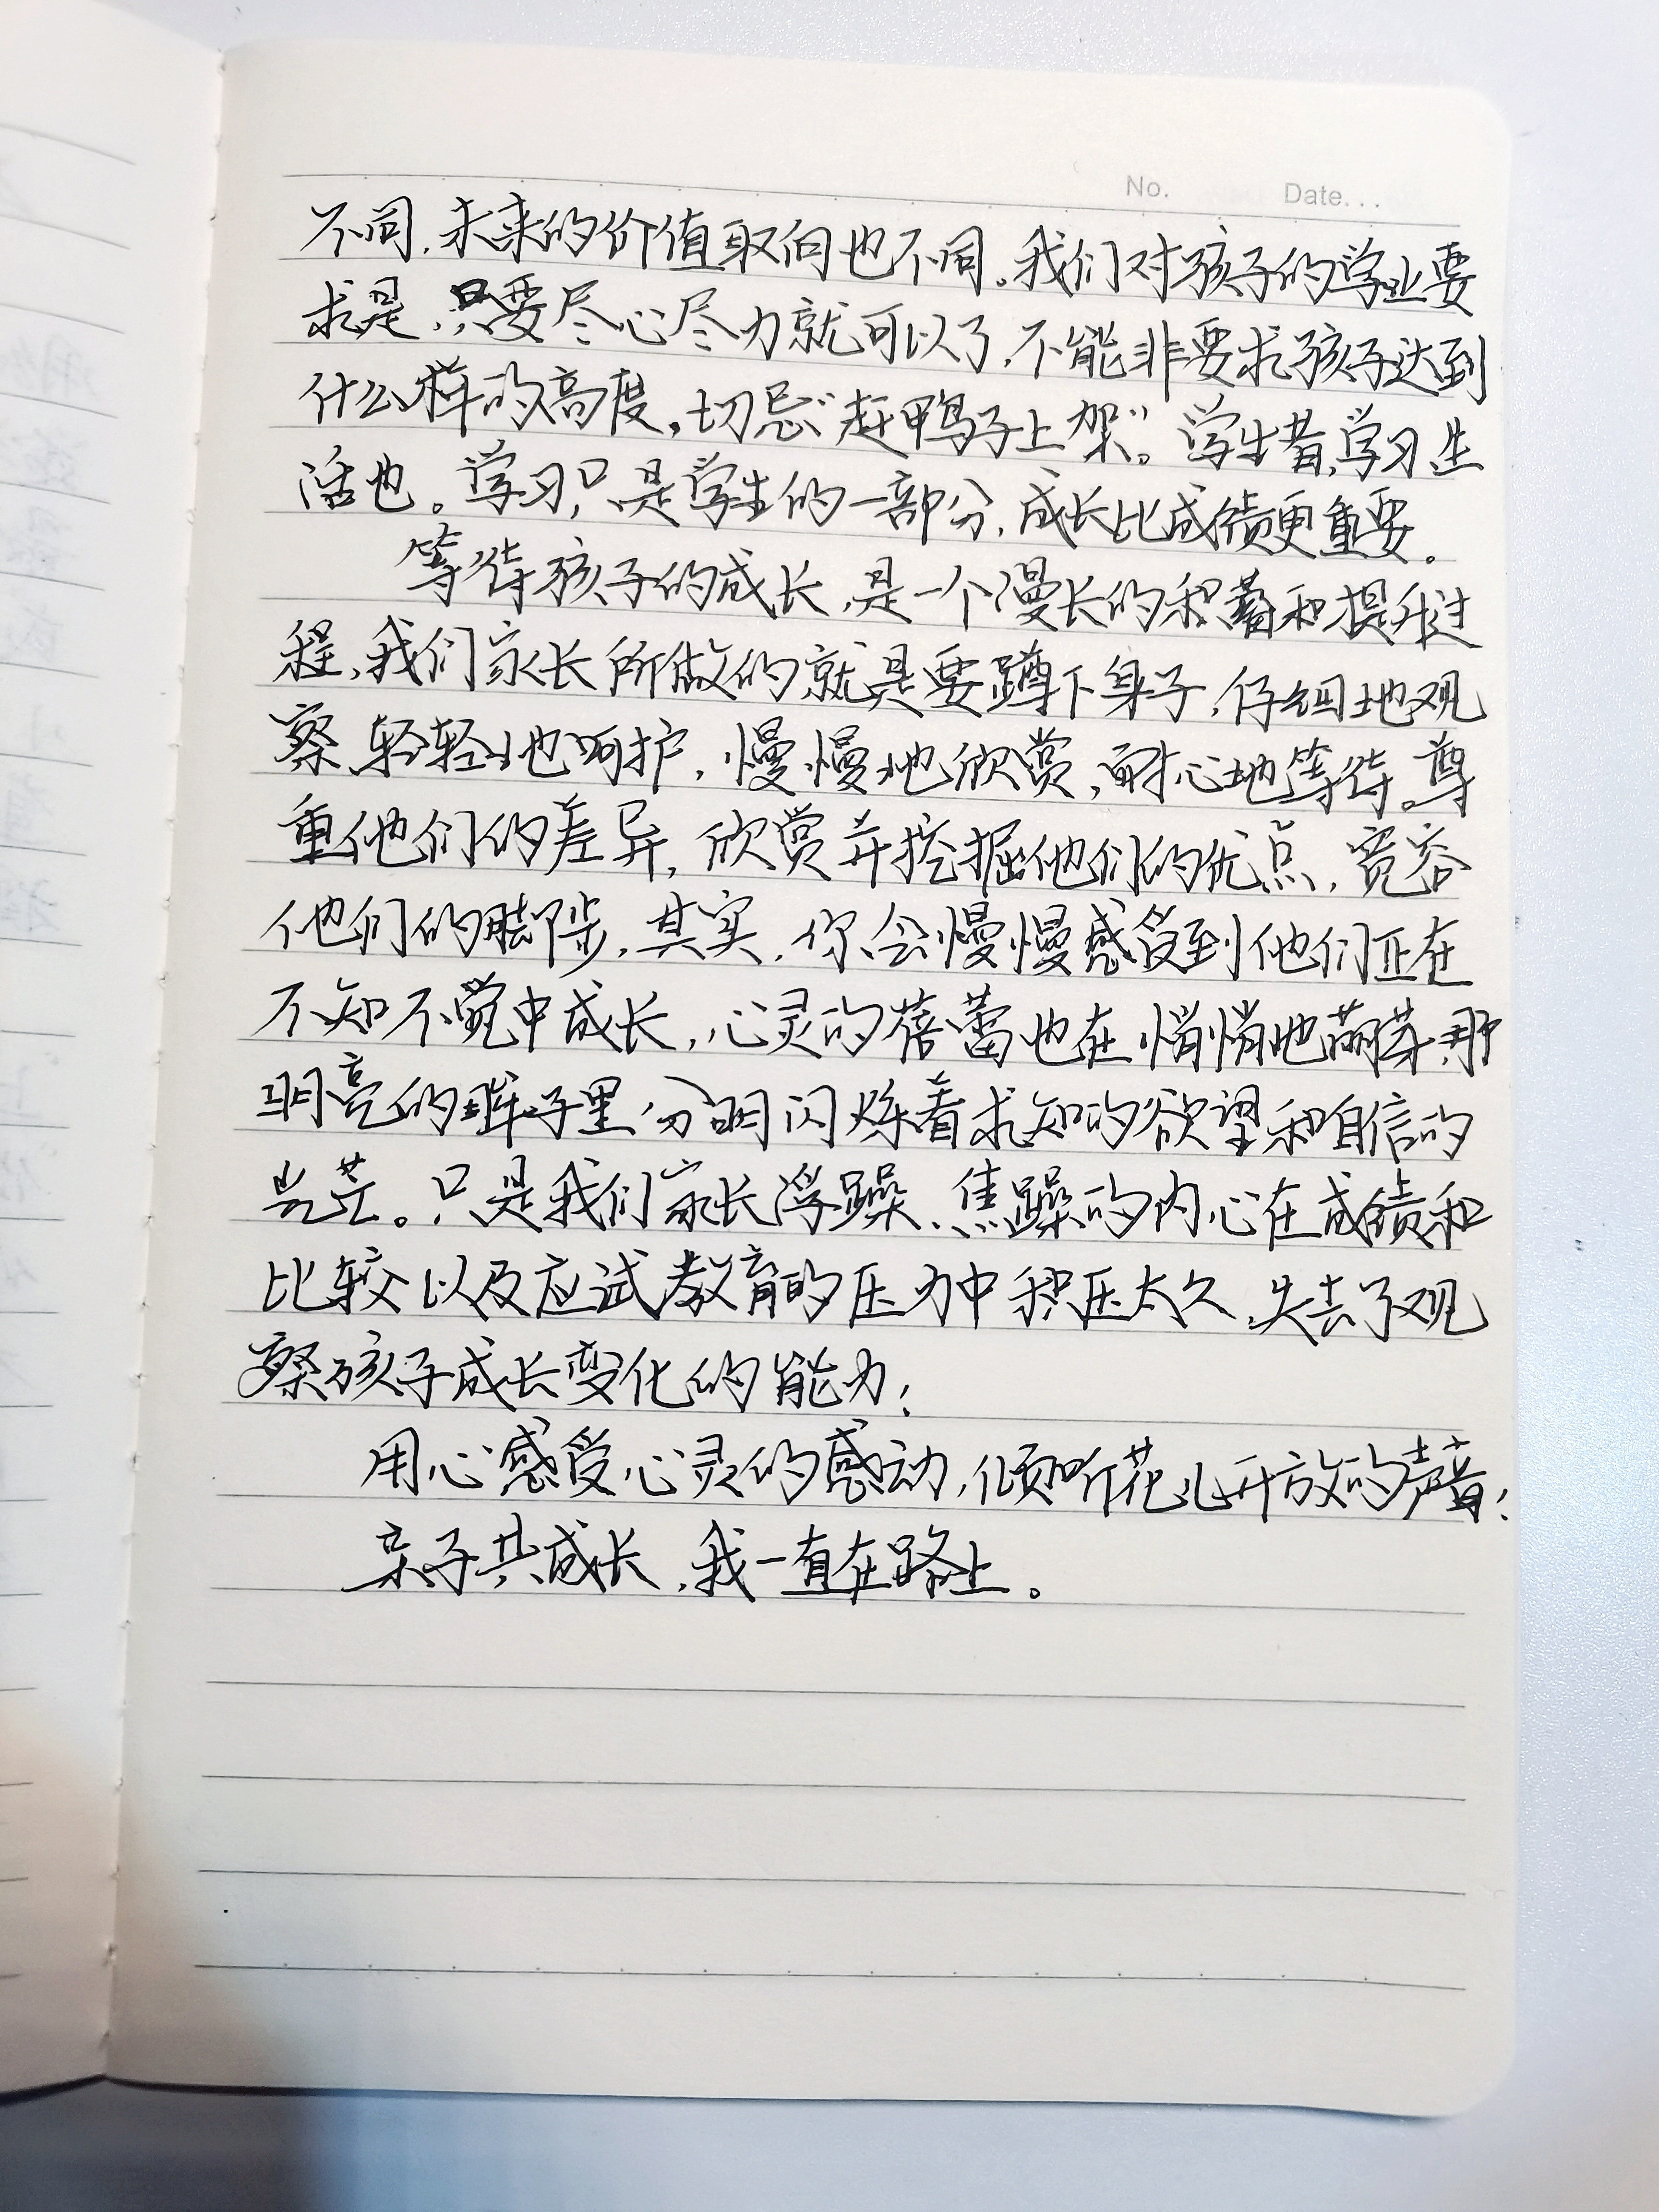 No. Date...
不同，未来的价值取向也不同。我们对孩子的学业要
求是，只要尽心尽力就可以了，不能非要求孩子达到
什么样的高度，切忌“赶鸭子上架”。学生者，学习生
活也。学习，只是学生的一部分，成长比成绩更重要。
等待孩子的成长，是一个漫长的积蓄和提升过
程，我们家长所做的就是要蹲下身子，仔细地观
察，轻轻地呵护，慢慢地欣赏，耐心地等待。尊
重他们的差异，欣赏并挖掘他们的优点，宽容
他们的脚步，其实，你会慢慢感受到他们正在
不知不觉中成长，心灵的蓓蕾也在悄悄地萌芽，那
明亮的眸子里分明闪烁着求知的欲望和自信的
光芒。只是我们家长浮躁、焦躁的内心在成绩和
比较以及应试教育的压力中积压太久，失去了观
察孩子成长变化的能力；
用心感受心灵的感动，倾听花儿开放的声音；
亲子共成长，我一直在路上。